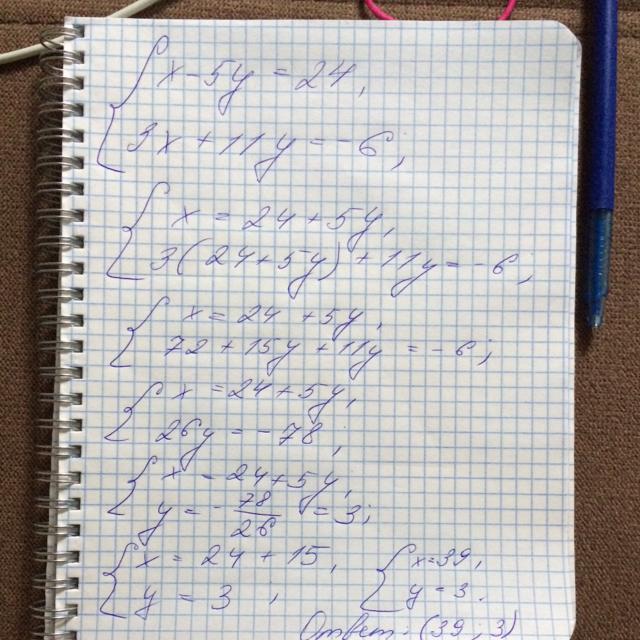 x - 5y = 24,
3x + 11y = -6;
x = 24 + 5y,
3(24 + 5y) + 11y = -6;
x = 24 + 5y,
72 + 15y + 11y = -6;
x = 24 + 5y,
26y = -78;
x = 24 + 5y,
y = -78/26 = 3;
x = 24 + 15, x = 39,
y = 3, y = 3.
Ответ: (39; 3)